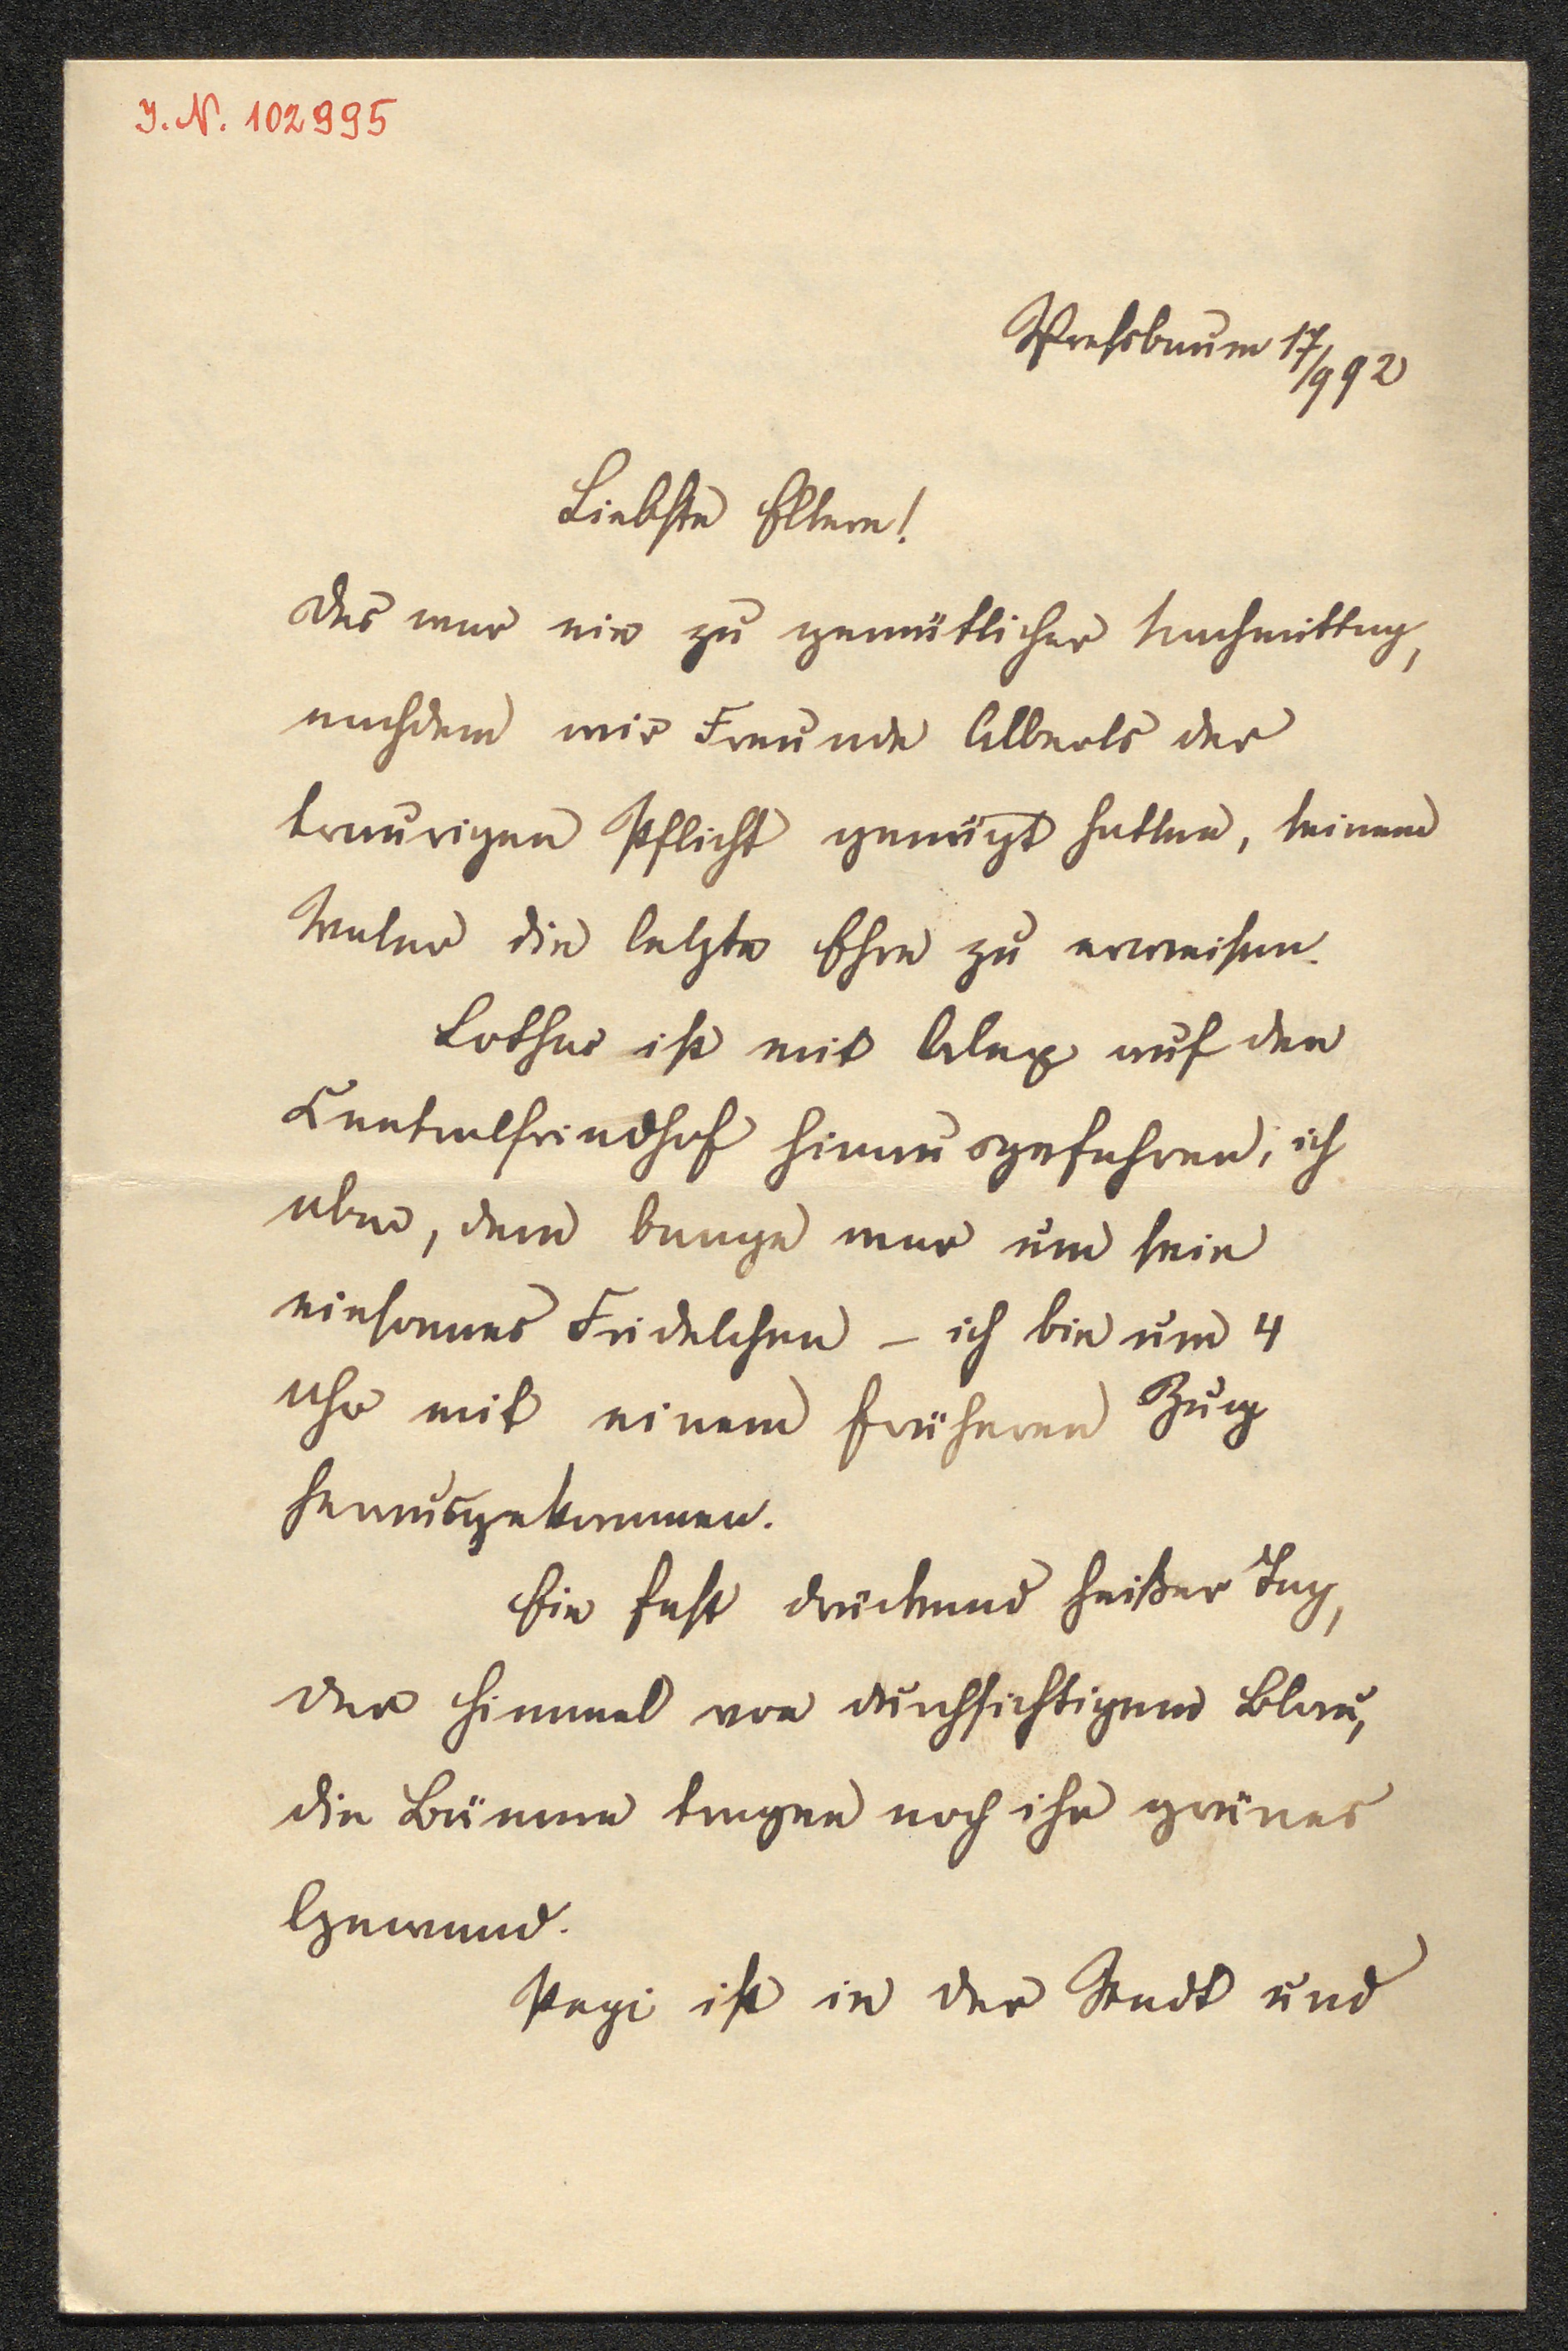 I. N. 102995
Pressbaum 17/9 92
Liebste Eltern!
Das war ein zu gemütlicher Nachmittag,
nachdem wir Freunde Alberts der
traurigen Pflicht genügt hatten, seinem
Vater die letzte Ehre zu erweisen.
Lothar ist mit Alex auf den
Centralfriedhof hinausgefahren; ich
aber, dem bange war um sein
einsames Fridelchen – ich bin um 4
Uhr mit einem früheren Zug
herausgekommen.
Ein fast drückend heißer Tag,
der Himmel von durchsichtigem Blau,
die Bäume tragen noch ihr grünes
Gewand.
Pepi ist in der Stadt und